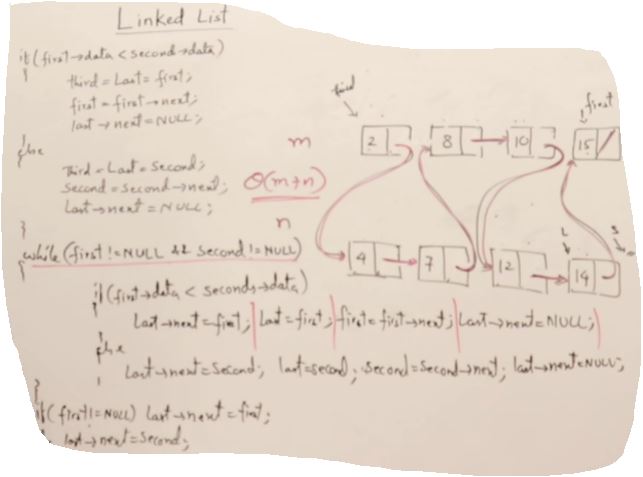 Linked List
if(first→data < second→data)
{
third = Last = first;
first = first→next;
last→next = NULL;
}
else
{
third = Last = second;
second = second→next;
Last→next = NULL;
}
while (first != NULL && second != NULL)
{
if(first→data < second→data)
Last→next=first; Last=first; first=first→next; Last→next=NULL;
}
else
{
Last→next=second; last=second; second=second→next; last→next=NULL;
}
if(first!=NULL) last→next=first;
last→next=second;
m
O(m+n)
n
third
first
2 8 10 15
L S
4 7 12 14